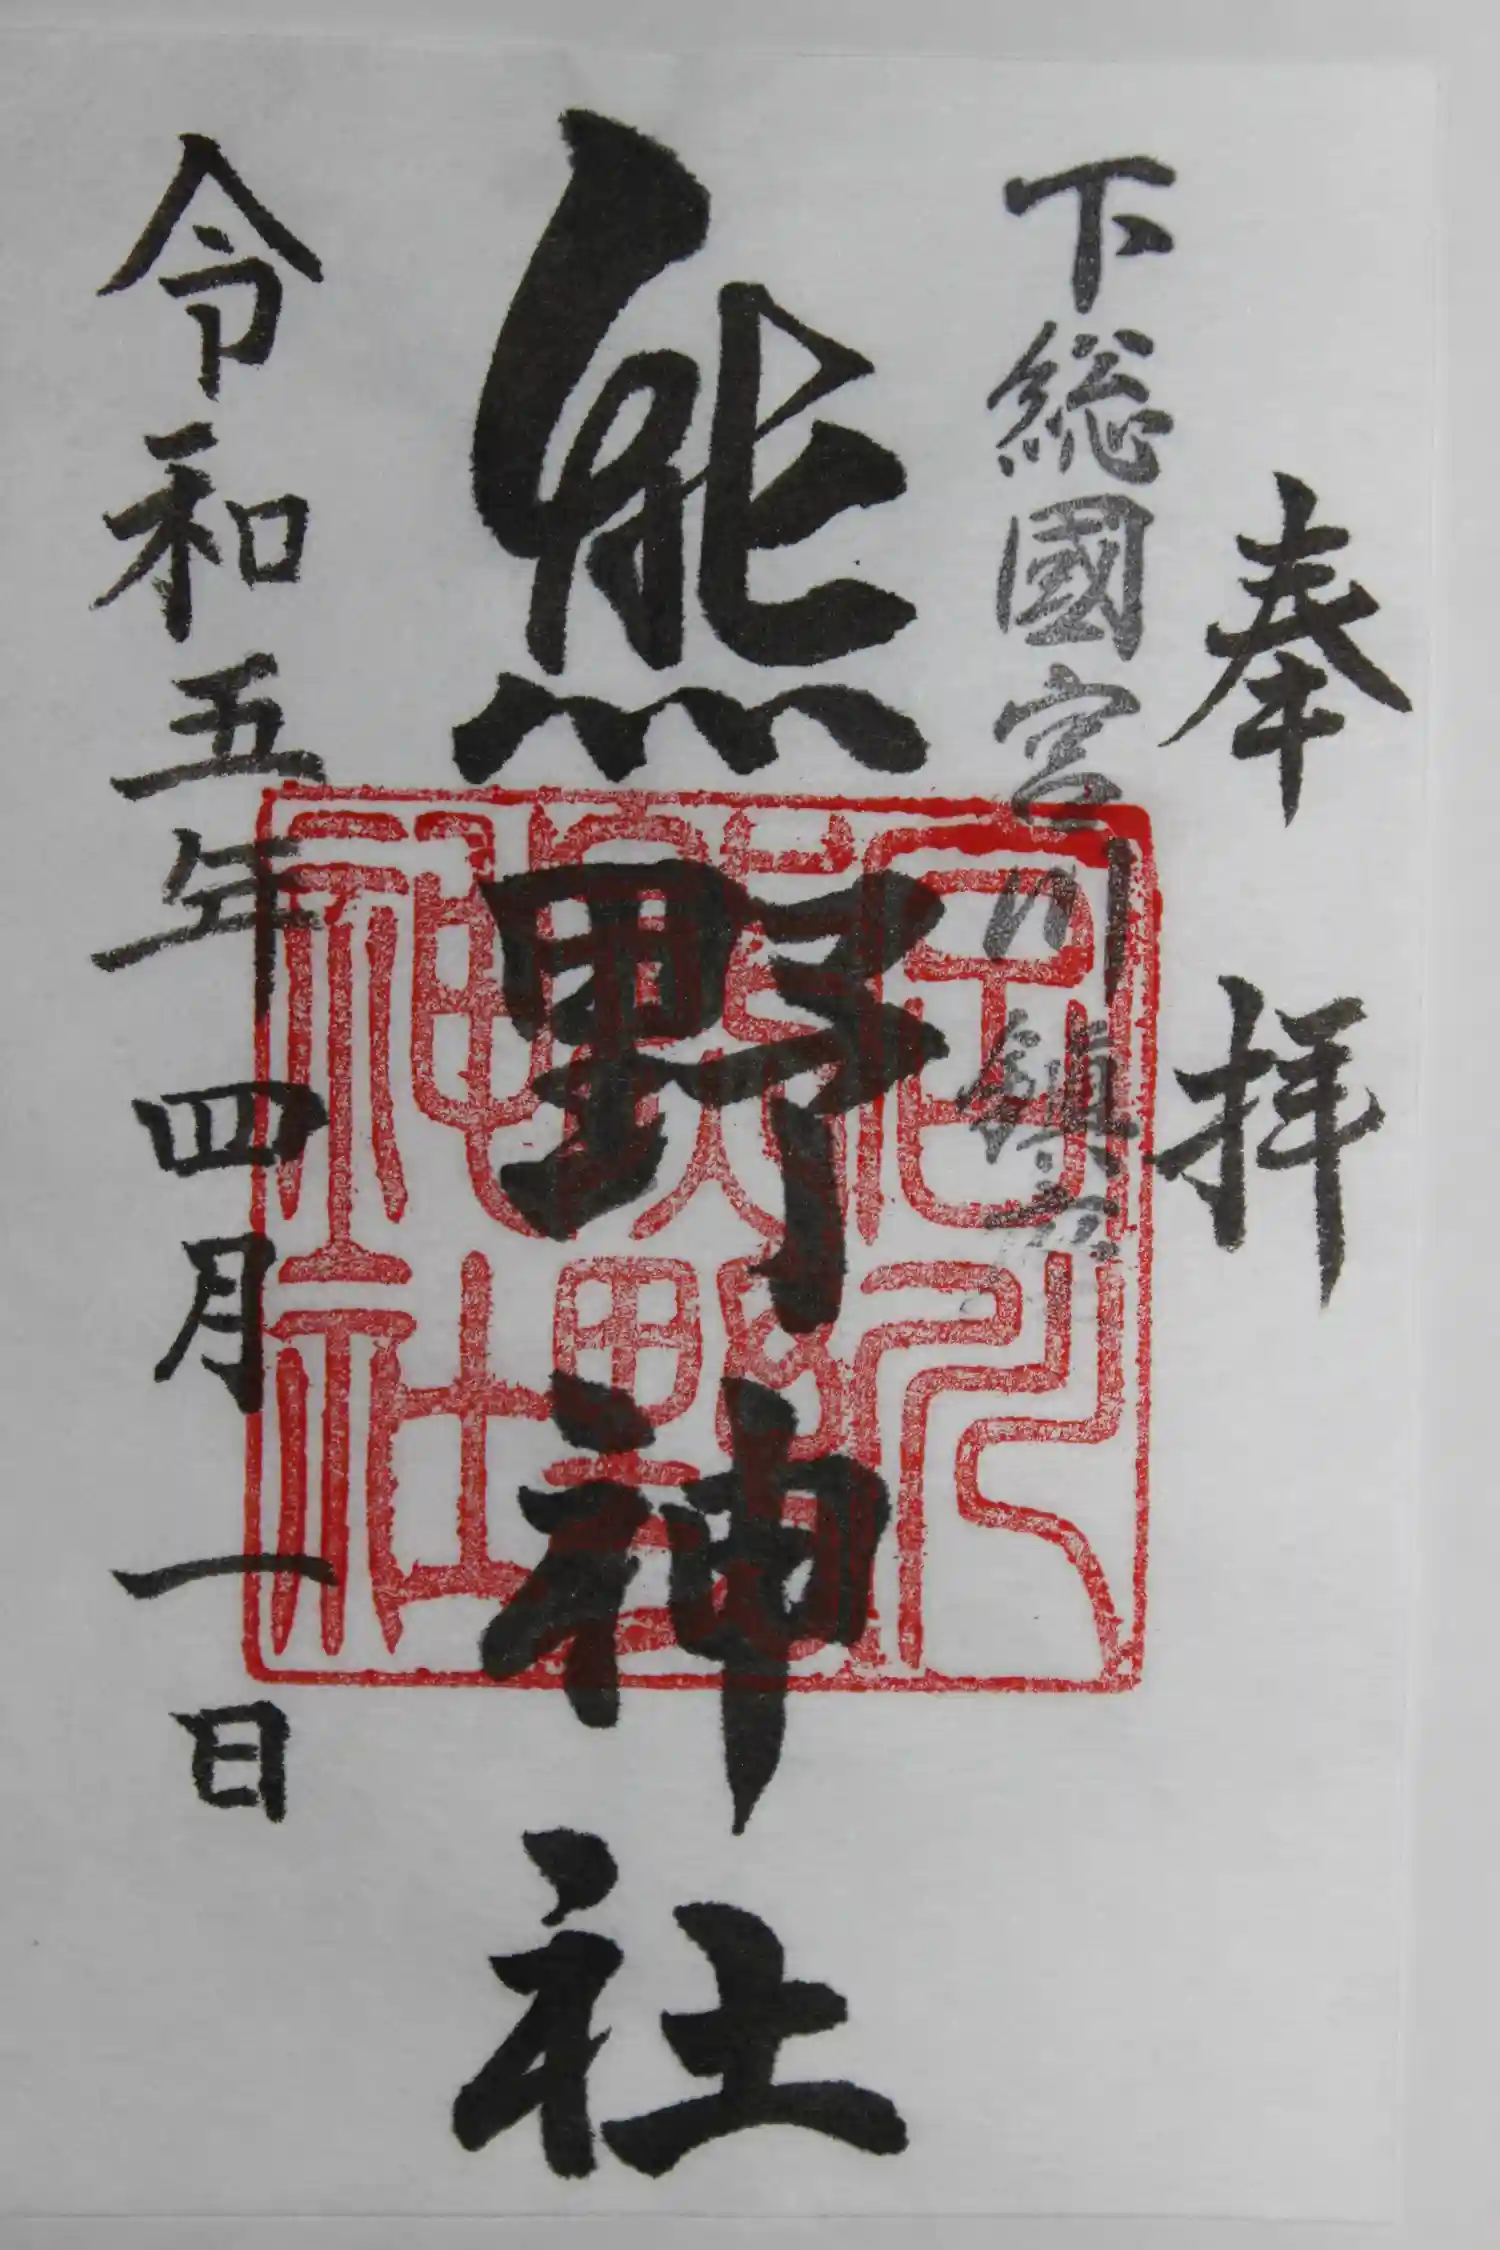 奉拝
下総國宮川鎮守
熊野神社
令和五年四月一日